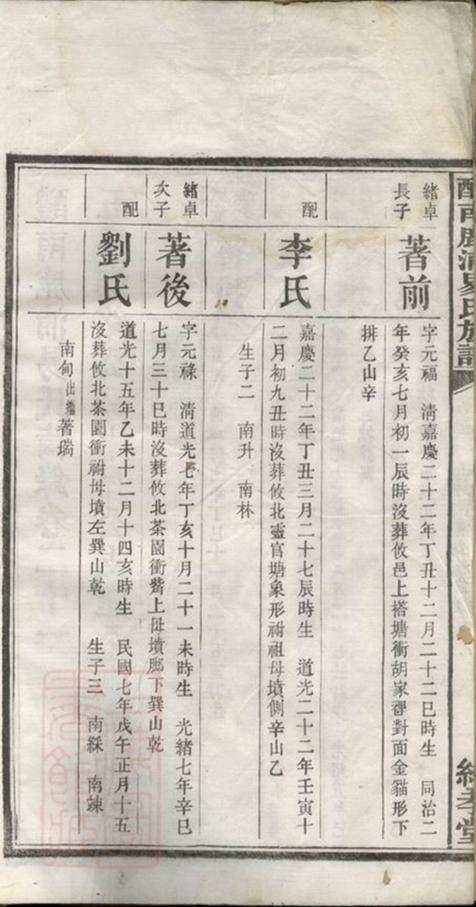 緒卓長子
著前
字元福 清嘉慶二十二年丁丑十二月二十二巳時生 同治二
年癸亥七月初一辰時沒葬攸邑上搭塘衝胡家對面金貓形下
排乙山辛
配
李氏
嘉慶二十二年丁丑三月二十七辰時生 道光二十二年壬寅十
二月初九丑時沒葬攸北靈官塘象形祔祖母墳側辛山乙
生子二 南升 南林
緒卓次子
著後
字元祿 清道光七年丁亥十月二十一未時生 光緒七年辛巳
七月三十巳時沒葬攸北茶園衝上母墳廊下巽山乾
配
劉氏
道光十五年乙未十二月十四亥時生 民國七年戊午正月十五
沒葬攸北茶園衝祔母墳左巽山乾 生子三 南綵 南竦
南甸出繼著瑞